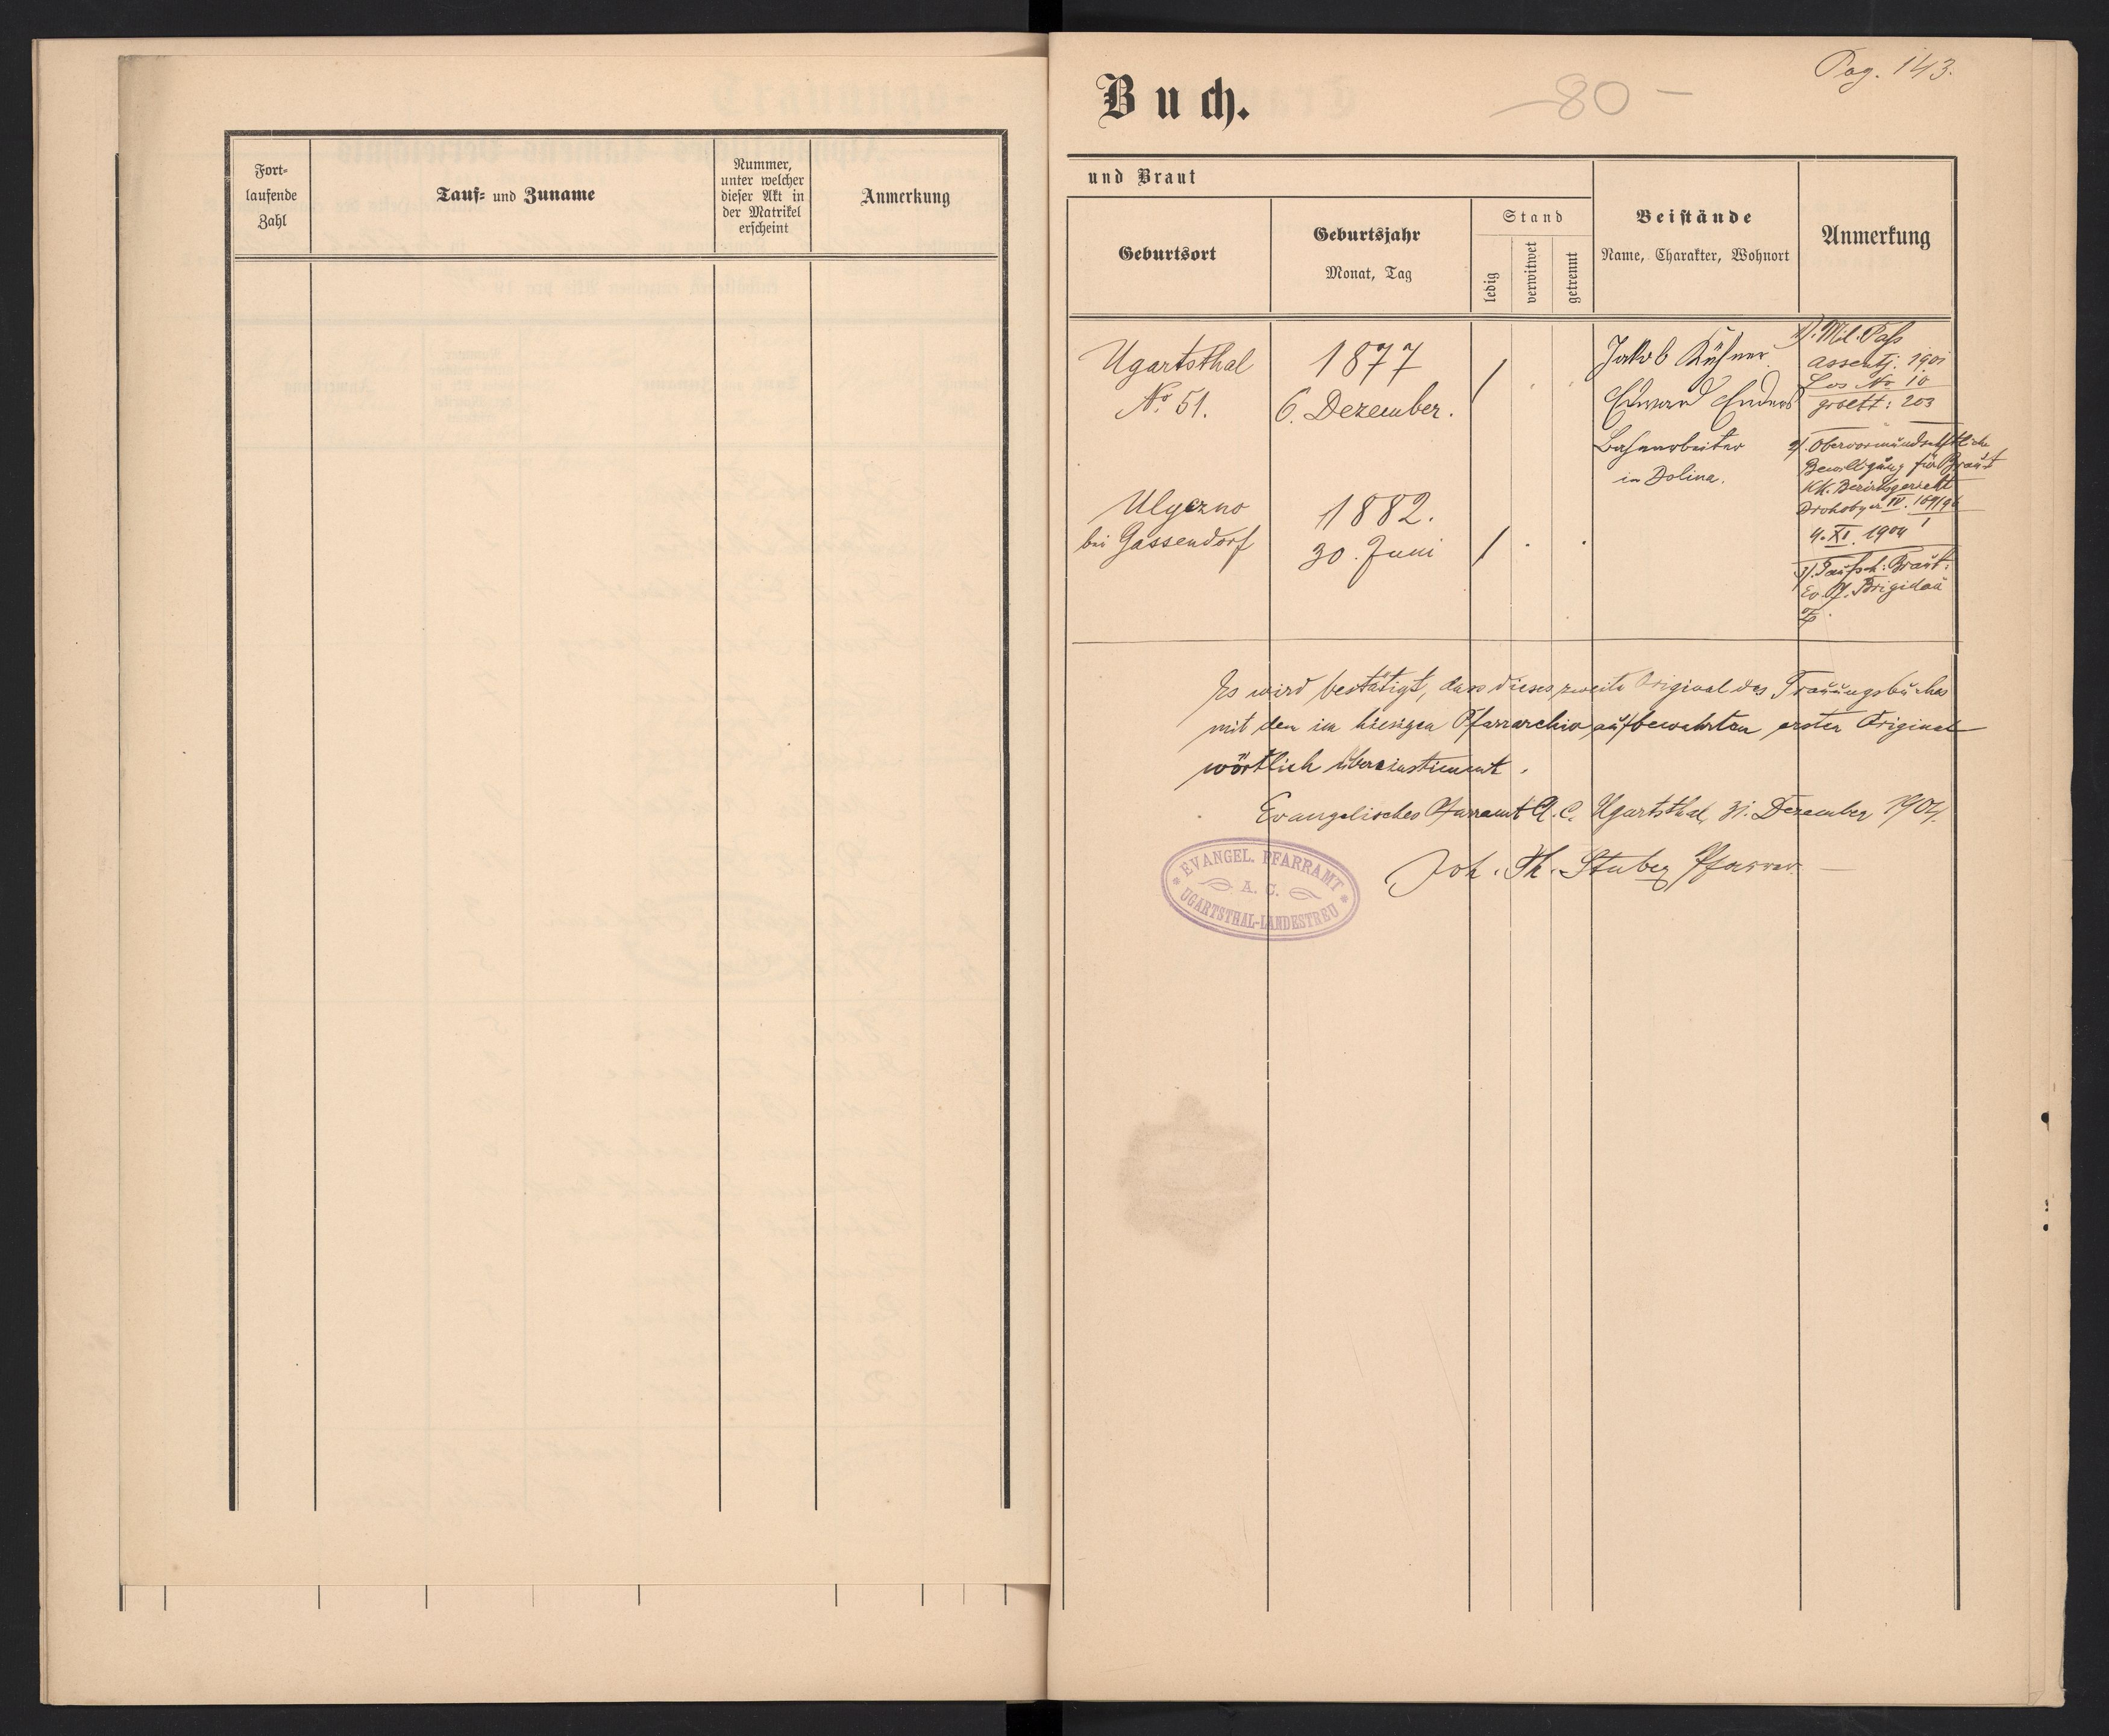 Fort-
laufende
Zahl
Tauf- und Zuname
Nummer,
unter welcher
dieser Akt in
der Matrikel
erscheint
Anmerkung
Pag. 143.
Buch.
-80-
und Braut
Geburtsort
Geburtsjahr
Monat, Tag
Stand
ledig
verwitwet
getrennt
Beistände
Name, Charakter, Wohnort
Anmerkung
Ugartsthal
No. 51.
1877
6. Dezember.
Jakob Kühner
Edward Enders
Bahnarbeiter
in Dolina.
1). Mil. Paß
assentj. 1901
Los No 10
grbltt: 203
2). Obervormundschftliche
Bewilligung für Braut
KK. Bezirksgericht
Drohobycz IV. 169/96
4. XI. 1904
3). Taufsch: Braut:
Ev. Pf. Brigidau
Ulyczno
bei Gassendorf
1882.
30. Juni
Es wird bestätigt, dass dieses zweite Original des Trauungsbuches
mit den im hiesigen Pfarrarchiv aufbewahrten ersten Original
wörtlich übereinstimmt.
Evangelisches Pfarramt A. C. Ugartsthal, 31. Dezember 1904.
Joh. Th. Stuber Pfarrer.
EVANGEL. PFARRAMT
A. C.
UGARTSTHAL-LANDESTREU